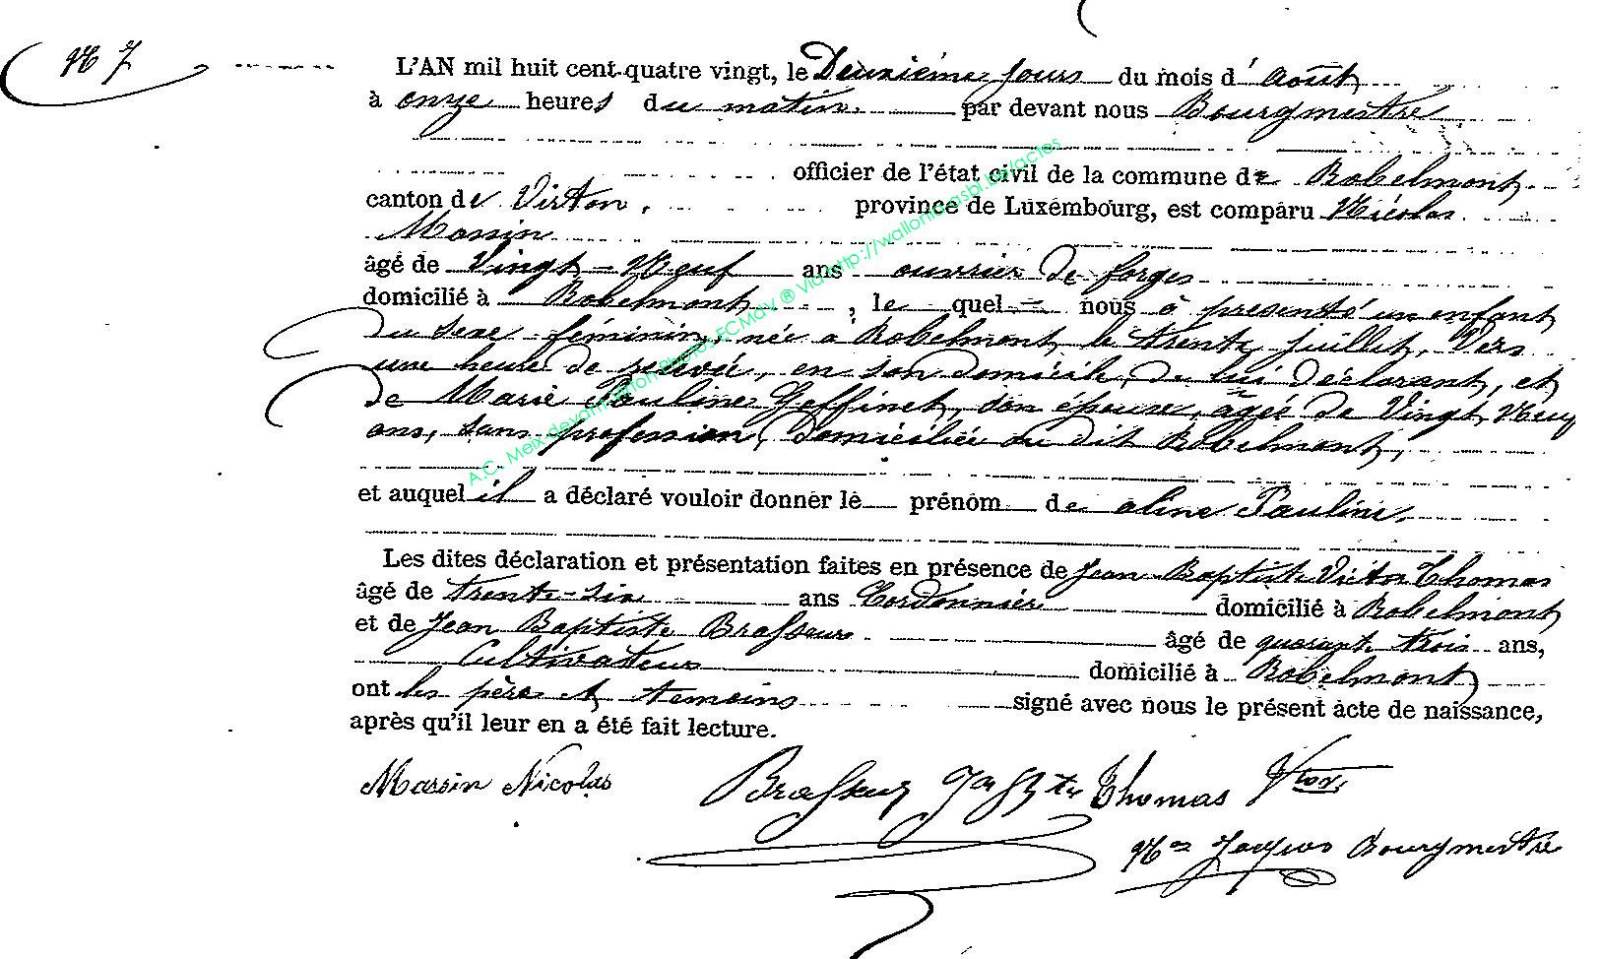 N 7
L'AN mil huit cent quatre vingt, le Deuxième jours du mois d' août
à onze heures du matin par devant nous Bourgmestre
officier de l'état civil de la commune de Robelmont
canton de Virton, province de Luxembourg, est comparu Nicolas
Massin
âgé de Vingt-Neuf ans ouvrier de forges
domicilié à Robelmont, le quel nous à presenté un enfant
du sexe féminin, née à Robelmont le trente juillet, Vers
une heure de relevée, en son domicile, de lui déclarant, et
de Marie Pauline Goffinet, son épouse, âgée de Vingt Neuf
ans, sans profession, domiciliée au dit Robelmont,
A.C. Meix devant Virton Photos ECMdV ® via http://wallonica-asbl.be/actes
et auquel il a déclaré vouloir donner le prénom de aline Pauline.
Les dites déclaration et présentation faites en présence de Jean Baptiste Victor Thomas
âgé de trente-six ans Cordonnier domicilié à Robelmont
et de Jean Baptiste Brasseur âgé de quarant trois ans,
Cultivateur domicilié à Robelmont
ont les père et temoins signé avec nous le présent acte de naissance,
après qu'il leur en a été fait lecture.
Massin Nicolas Brasseur Thomas Vtor
Jacques Bourgmestre